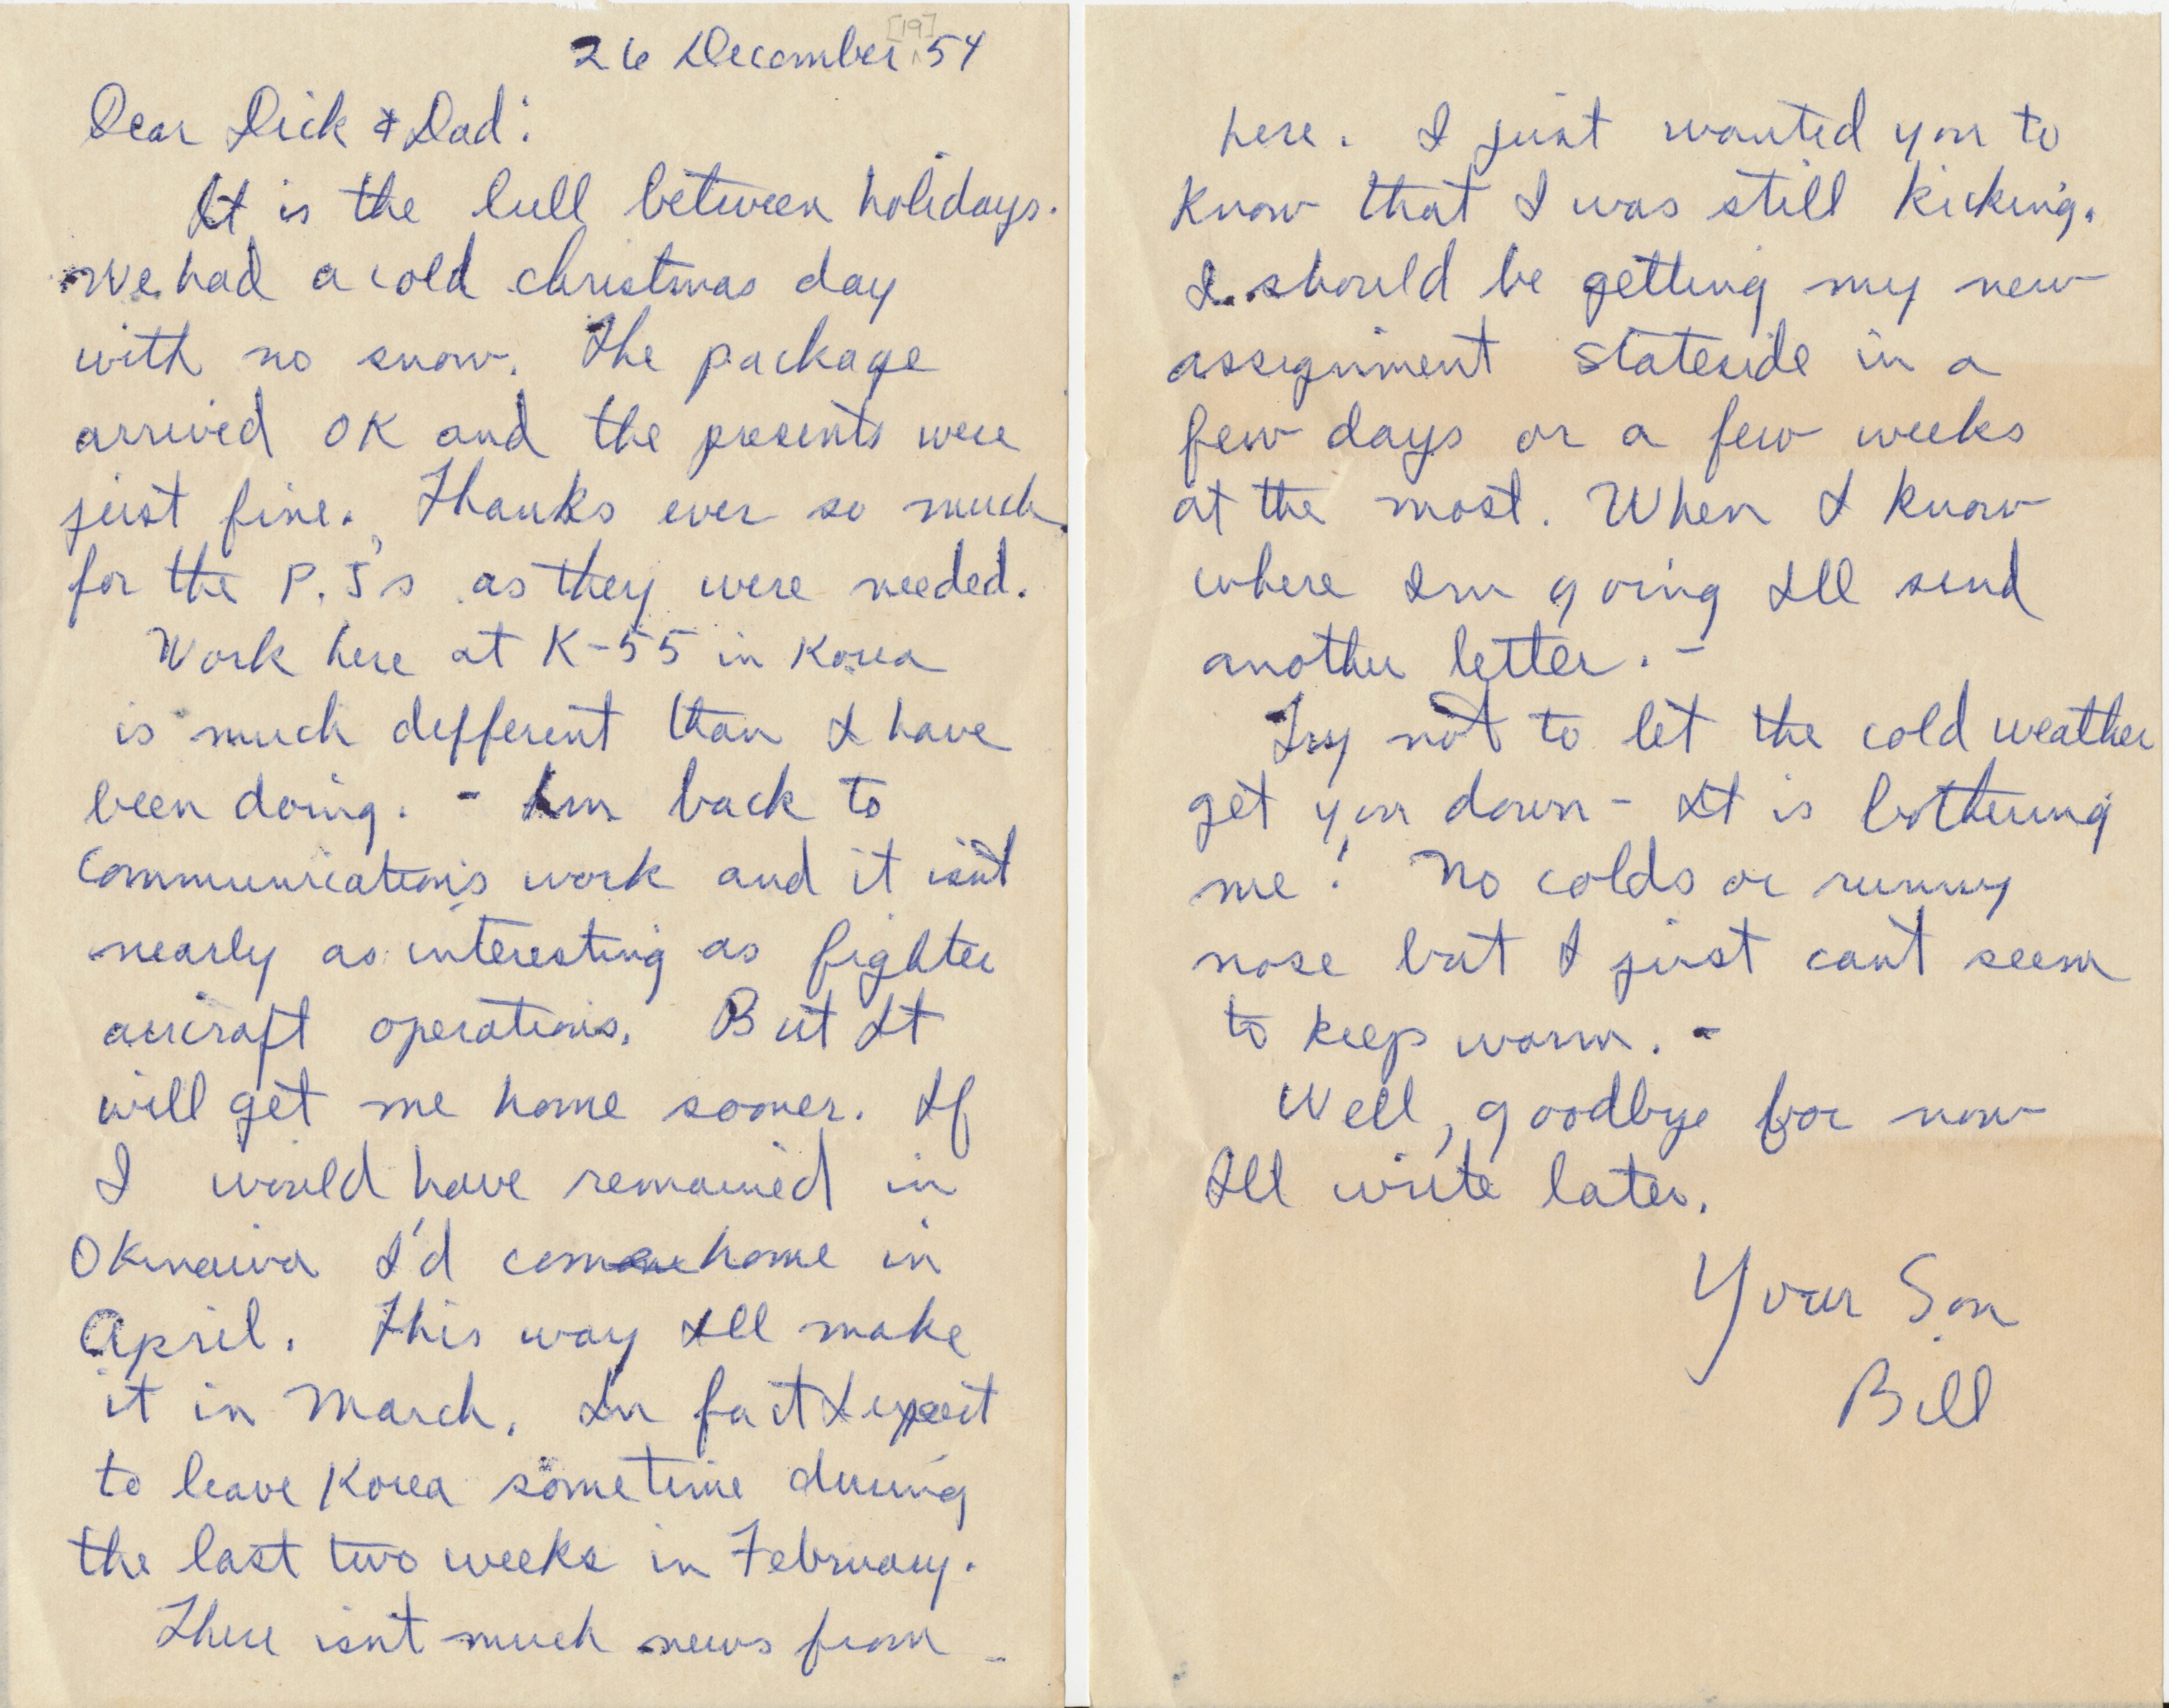 [19]
26 December 54
Dear Dick & Dad:
It is the lull between holidays.
We had a cold christmas day
with no snow. The package
arrived OK and the presents were
just fine. Thanks ever so much
for the P.J's as they were needed.
Work here at K-55 in Korea
is much different than I have
been doing. - Im back to
communications work and it isn't
nearly as interesting as fighter
aircraft operations. But It
will get me home sooner. If
I would have remained in
Okinawa I'd come home in
April. This way Ill make
it in March. In fact I expect
to leave Korea sometime during
the last two weeks in February.
There isn't much news from
here. I just wanted you to
know that I was still kicking.
I should be getting my new
assignment stateside in a
few days or a few weeks
at the most. When I know
where Im going Ill send
another letter. -
Try not to let the cold weather
get you down - It is bothering
me! No colds or runny
nose but I just cant seem
to keep warm. -
Well, goodbye for now
Ill write later.
Your Son
Bill